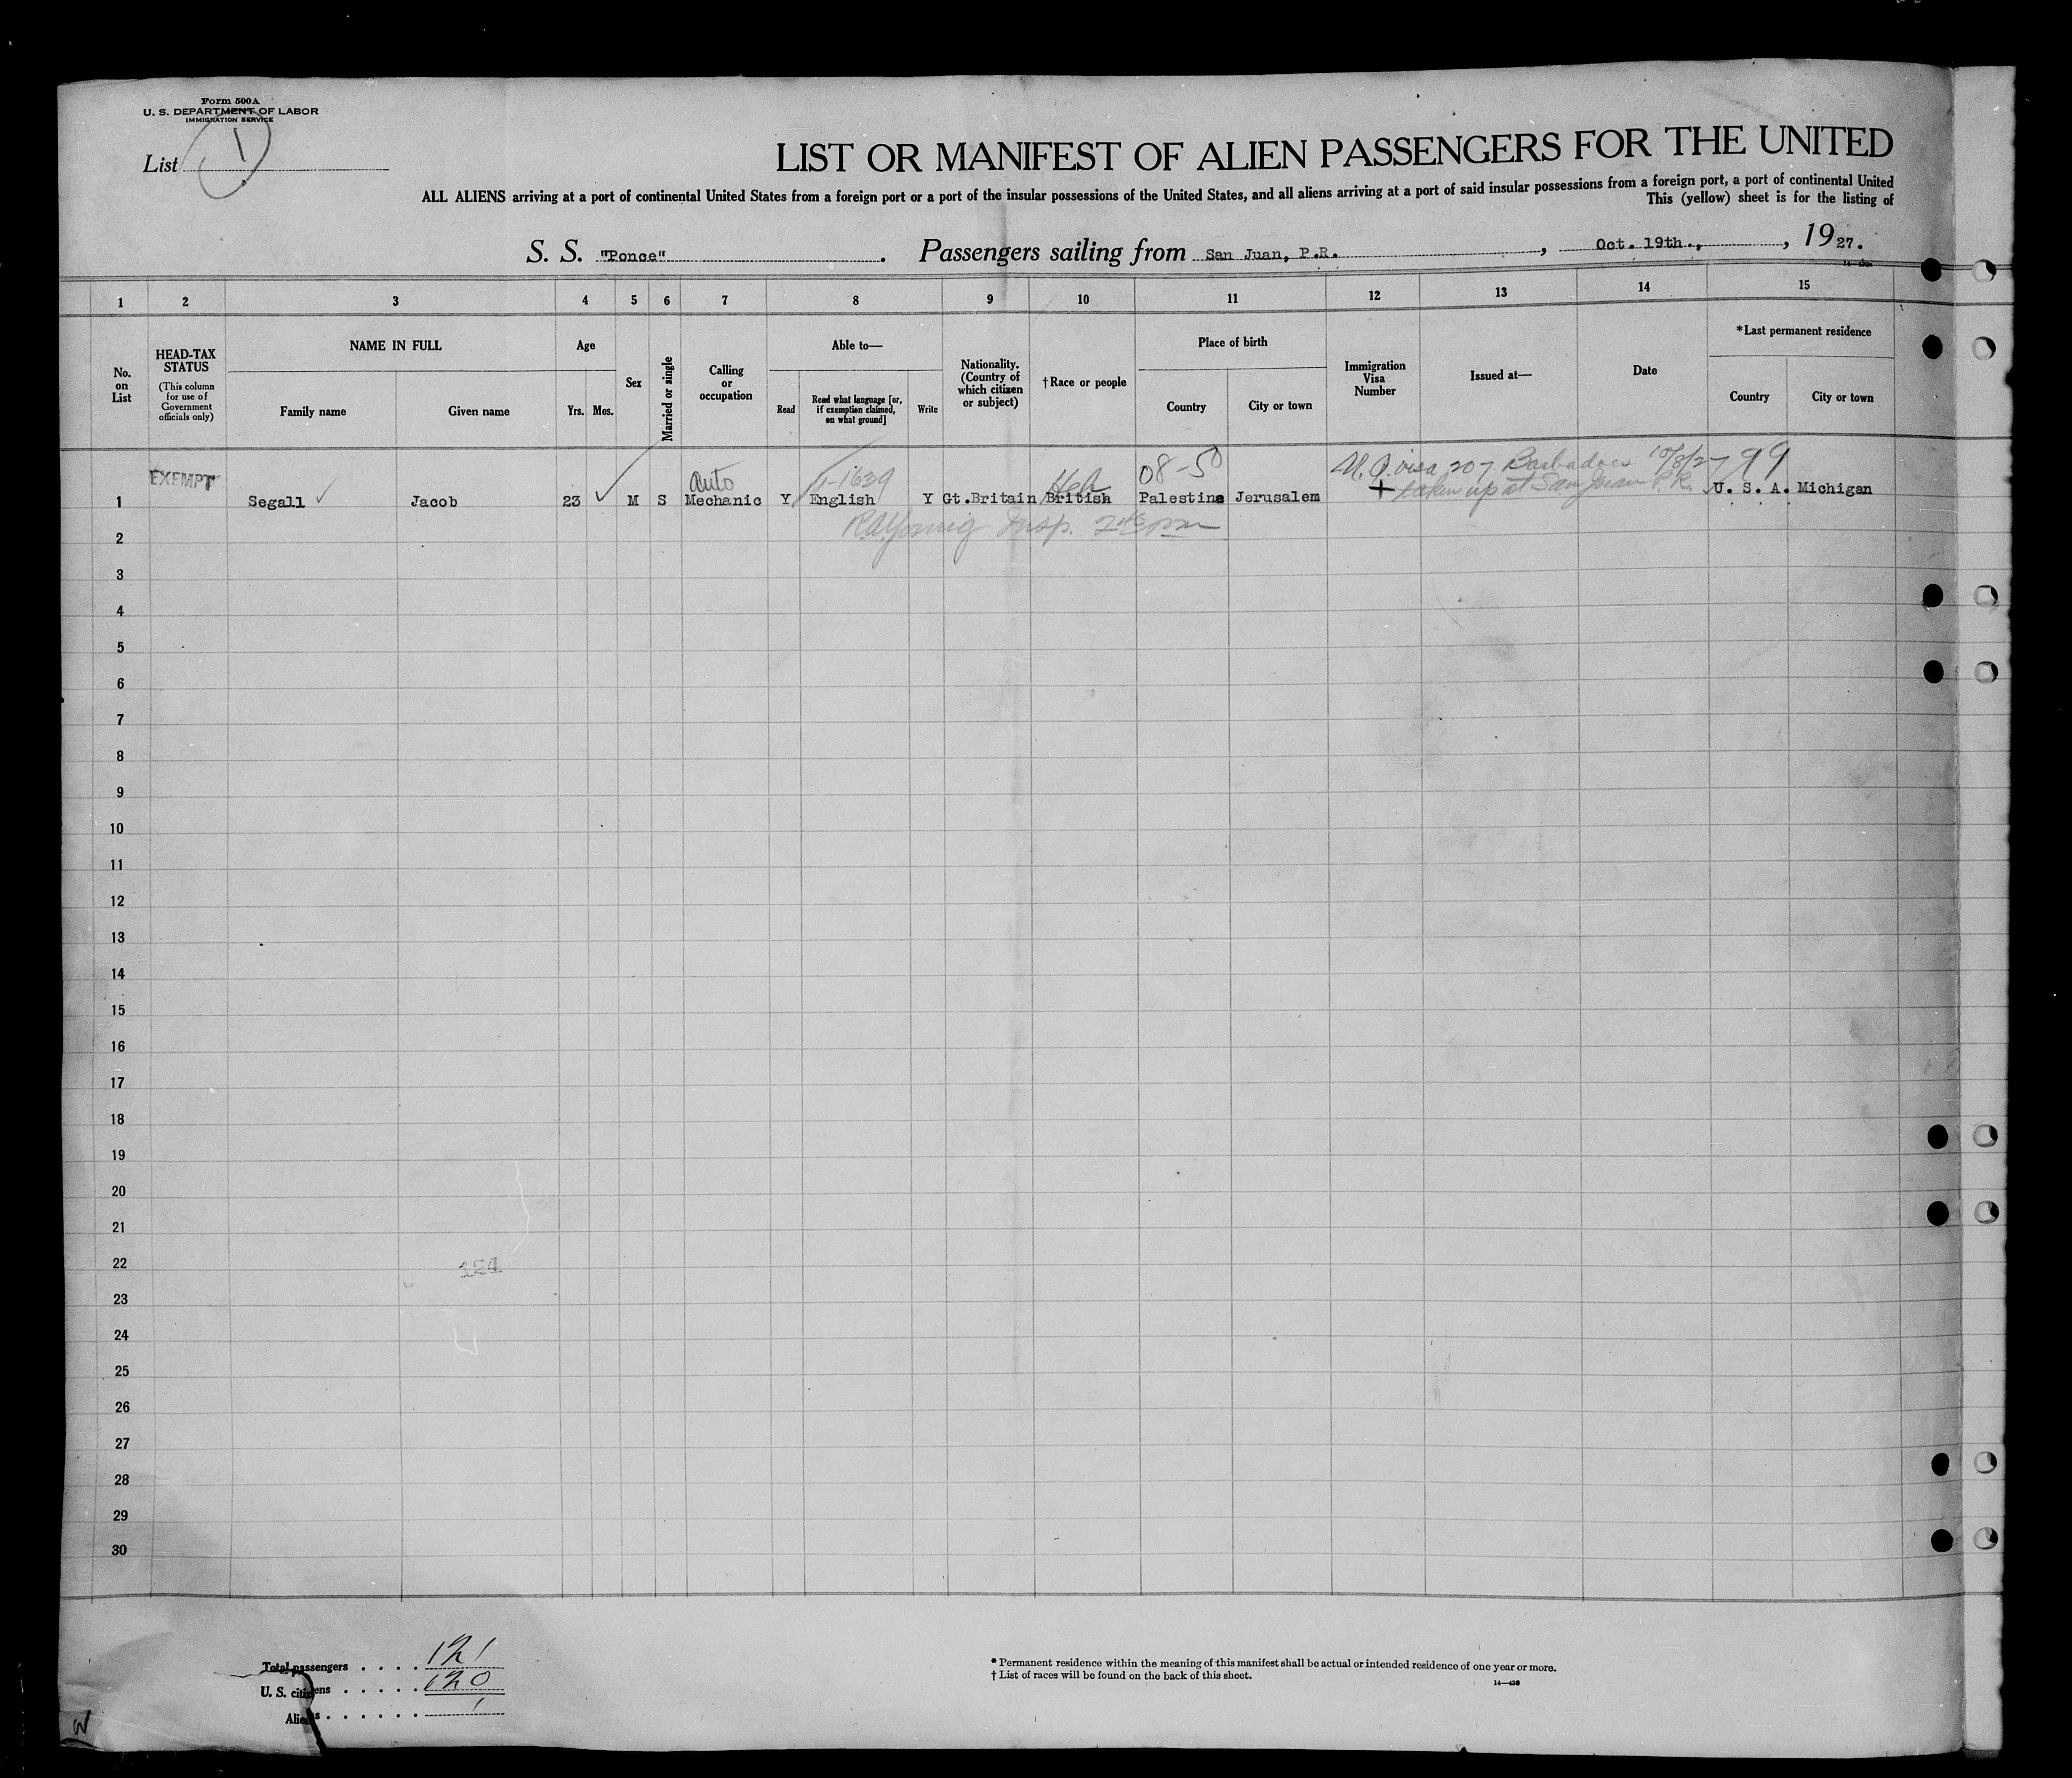 Form 500A
U. S. DEPARTMENT OF LABOR
IMMIGRATION SERVICE
List 1
LIST OR MANIFEST OF ALIEN PASSENGERS FOR THE UNITED
ALL ALIENS arriving at a port of continental United States from a foreign port or a port of the insular possessions of the United States, and all aliens arriving at a port of said insular possessions from a foreign port, a port of continental United
This (yellow) sheet is for the listing of
S. S. "Ponce". Passengers sailing from San Juan, P.R., Oct. 19th., 1927.
1 2 3 4 5 6 7 8 9 10 11 12 13 14 15
No. on List
HEAD-TAX STATUS
(This column for use of Government officials only)
NAME IN FULL
Family name Given name
Age
Yrs. Mos.
Sex
Married or single
Calling or occupation
Able to—
Read
Read what language [or, if exemption claimed, on what ground]
Write
Nationality. (Country of which citizen or subject)
†Race or people
Place of birth
Country City or town
Immigration Visa Number
Issued at—
Date
*Last permanent residence
Country City or town
EXEMPT auto 1-1639 Heb 08-50 visa 207 Barbadoes 10/8/27 99
taken up at San Juan P.R.
1 Segall Jacob 23 M S Mechanic Y English Y Gt.Britain British Palestine Jerusalem U. S. A. Michigan
Insp.
2
3
4
5
6
7
8
9
10
11
12
13
14
15
16
17
18
19
20
21
22
23
24
25
26
27
28
29
30
Total passengers . . . . 121
U. S. citizens . . . . . 120
Aliens . . . . . . 1
* Permanent residence within the meaning of this manifest shall be actual or intended residence of one year or more.
† List of races will be found on the back of this sheet.
14—430